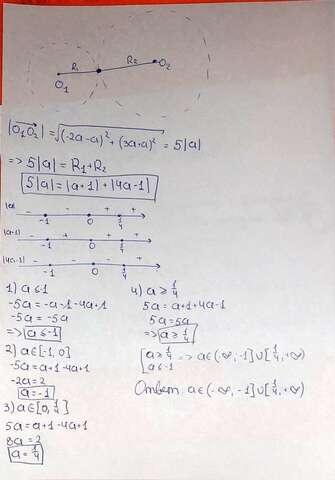 R₁ R₂ O₂
O₁
|O₁O₂| = √((-2a-a)² + (3a+a)²) = 5|a|
=> 5|a| = R₁+R₂
5|a| = |a+1| + |4a-1|
|a| - - + +
-1 0 1/4
|a+1| - + + +
-1 0 1/4
|4a-1| - - - +
-1 0 1/4
1) a ≤ -1
-5a = -a-1-4a+1
-5a = -5a
=> a ≤ -1
2) a ∈ [-1, 0]
-5a = a+1-4a+1
-2a = 2
a = -1
3) a ∈ [0, 1/4]
5a = a+1-4a+1
8a = 2
a = 1/4
4) a ≥ 1/4
5a = a+1+4a-1
5a = 5a
=> a ≥ 1/4
[a ≥ 1/4 => a ∈ (-∞, -1] ∪ [1/4, +∞)
a ≤ -1
Ответ: a ∈ (-∞, -1] ∪ [1/4, +∞)